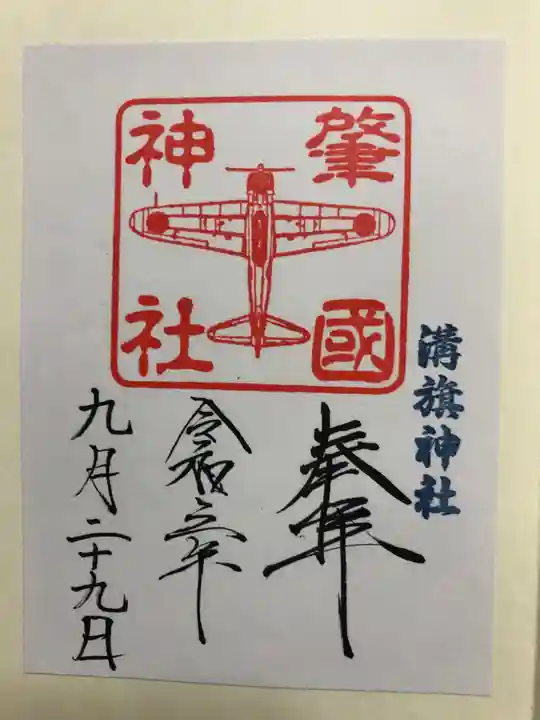 肇國
神社
溝旗神社
奉拝
令和三年
九月二十九日